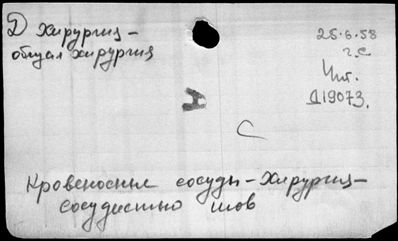 D Хирургия –
общая хирургия
25.6.58
г.е
Инт.
Д19073.
A
C
Кровеносные сосуды – Хирургия –
сосудистый шов